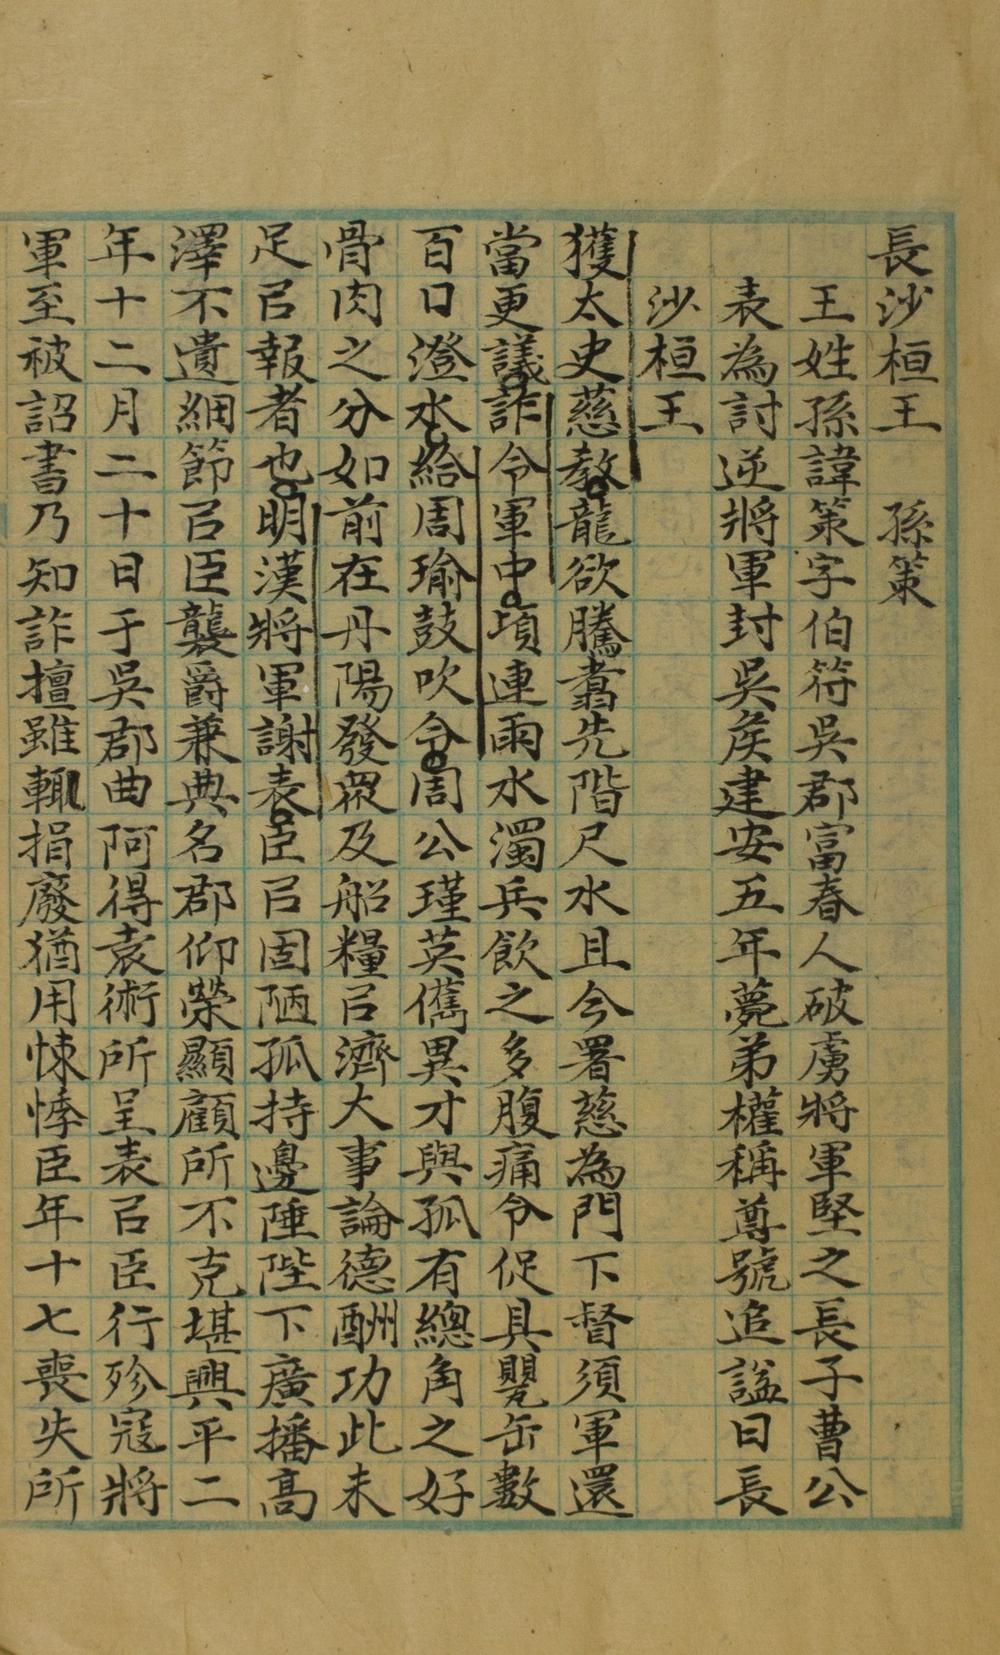 長沙桓王　孫策
王姓孫諱策字伯符吳郡富春人破虜將軍堅之長子曹公
表為討逆將軍封吳矦建安五年薨弟權稱尊號追謚曰長
沙桓王
獲太史慈教龍欲騰翥先階尺水且今署慈為門下督須軍還
當更議詐令軍中頃連雨水濁兵飲之多腹痛令促具甖缶數
百口澄水給周瑜鼓吹令周公瑾英儁異才與孤有總角之好
骨肉之分如前在丹陽發衆及船糧㠯濟大事論德酬功此未
足㠯報者也明漢將軍謝表臣㠯固陋孤持邊陲陛下廣播高
澤不遺細節㠯臣襲爵兼典名郡仰榮顯顧所不克堪興平二
年十二月二十日于吳郡曲阿得袁術所呈表㠯臣行殄寇將
軍至被詔書乃知詐擅雖輙捐廢猶用悚悸臣年十七喪失所